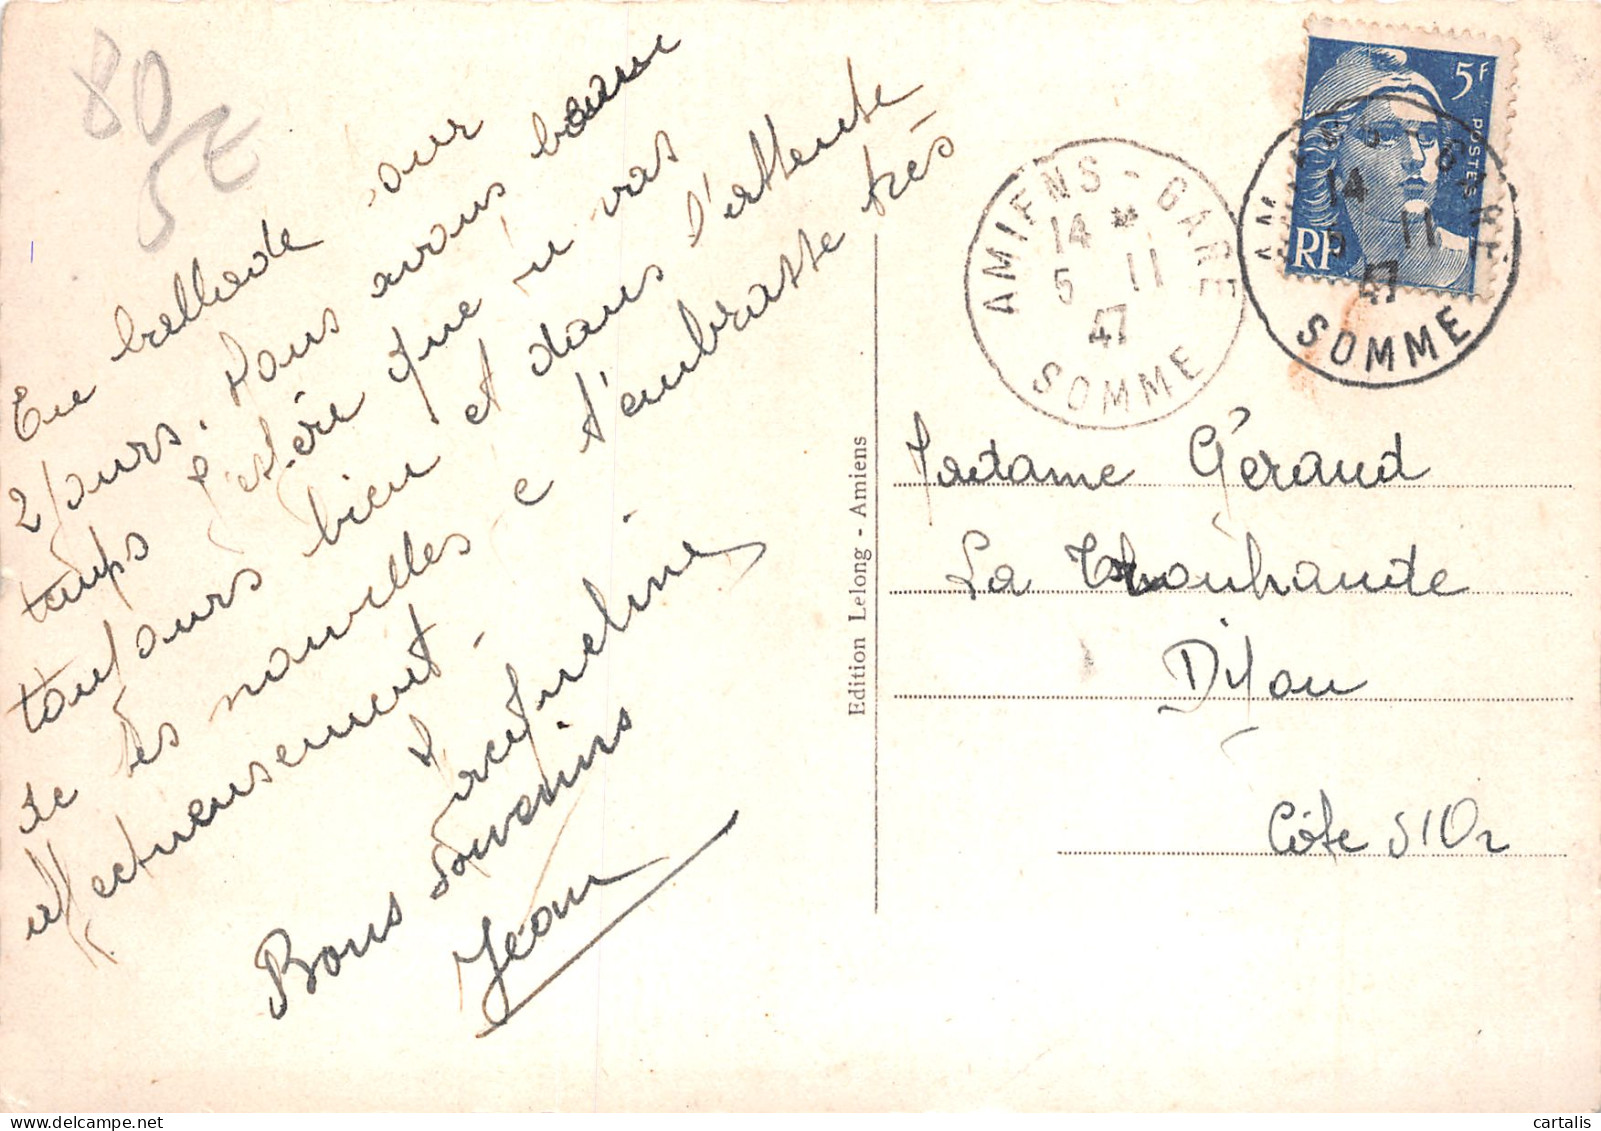 80
5E
En ballade pour
2 jours. Nous avons beau
temps j'espère que tu vas
toujours bien et dans l'attente
de tes nouvelles je t'embrasse très
affectueusement.
Jacqueline
Bons souvenirs
Jean
Edition Lelong - Amiens
AMIENS - GARE
14 *
5 11
47
SOMME
5F
POSTES
RF
AMIENS - GARE
14
5 11
47
SOMME
Madame Géraud
La
Dijon
Côte d'Or
cartalis